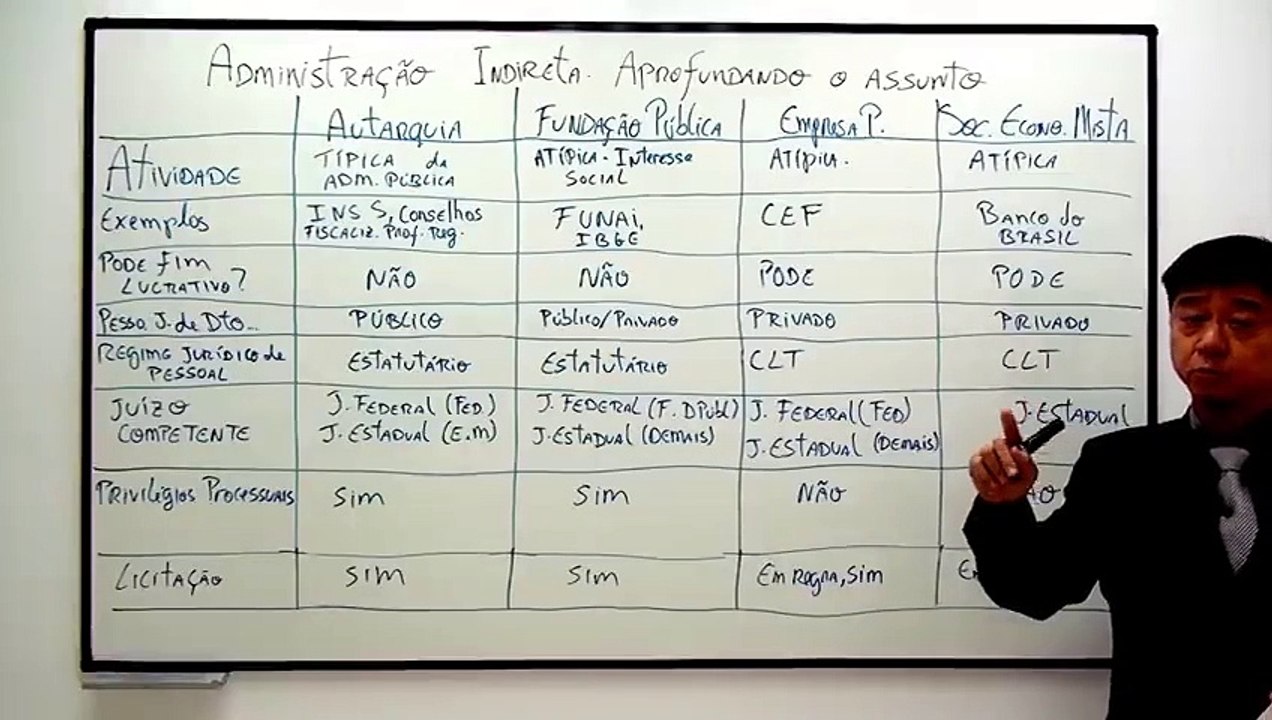 ADMINISTRAÇÃO INDIRETA. APROFUNDANDO O ASSUNTO
AUTARQUIA FUNDAÇÃO PÚBLICA EMPRESA P. SOC. ECONO. MISTA
ATIVIDADE TÍPICA da ATÍPICA. Interesse ATÍPICA. ATÍPICA
ADM. PÚBLICA SOCIAL
Exemplos INSS, Conselhos FUNAI, CEF Banco do
FISCALIZ. Prof. Reg. IBGE BRASIL
PODE FIM NÃO NÃO PODE PODE
LUCRATIVO?
Pesso. J. de Dto... PÚBLICO Público/Privado PRIVADO PRIVADO
REGIME JURÍDICO de ESTATUTÁRIO ESTATUTÁRIO CLT CLT
PESSOAL
JUÍZO J. FEDERAL (FED.) J. FEDERAL (F. DPubl) J. FEDERAL (FED) J. ESTADUAL
COMPETENTE J. ESTADUAL (E.M) J. ESTADUAL (DEMAIS) J. ESTADUAL (DEMAIS)
PRIVILÉGIOS PROCESSUAIS SIM SIM NÃO
LICITAÇÃO SIM SIM Em Regra, Sim